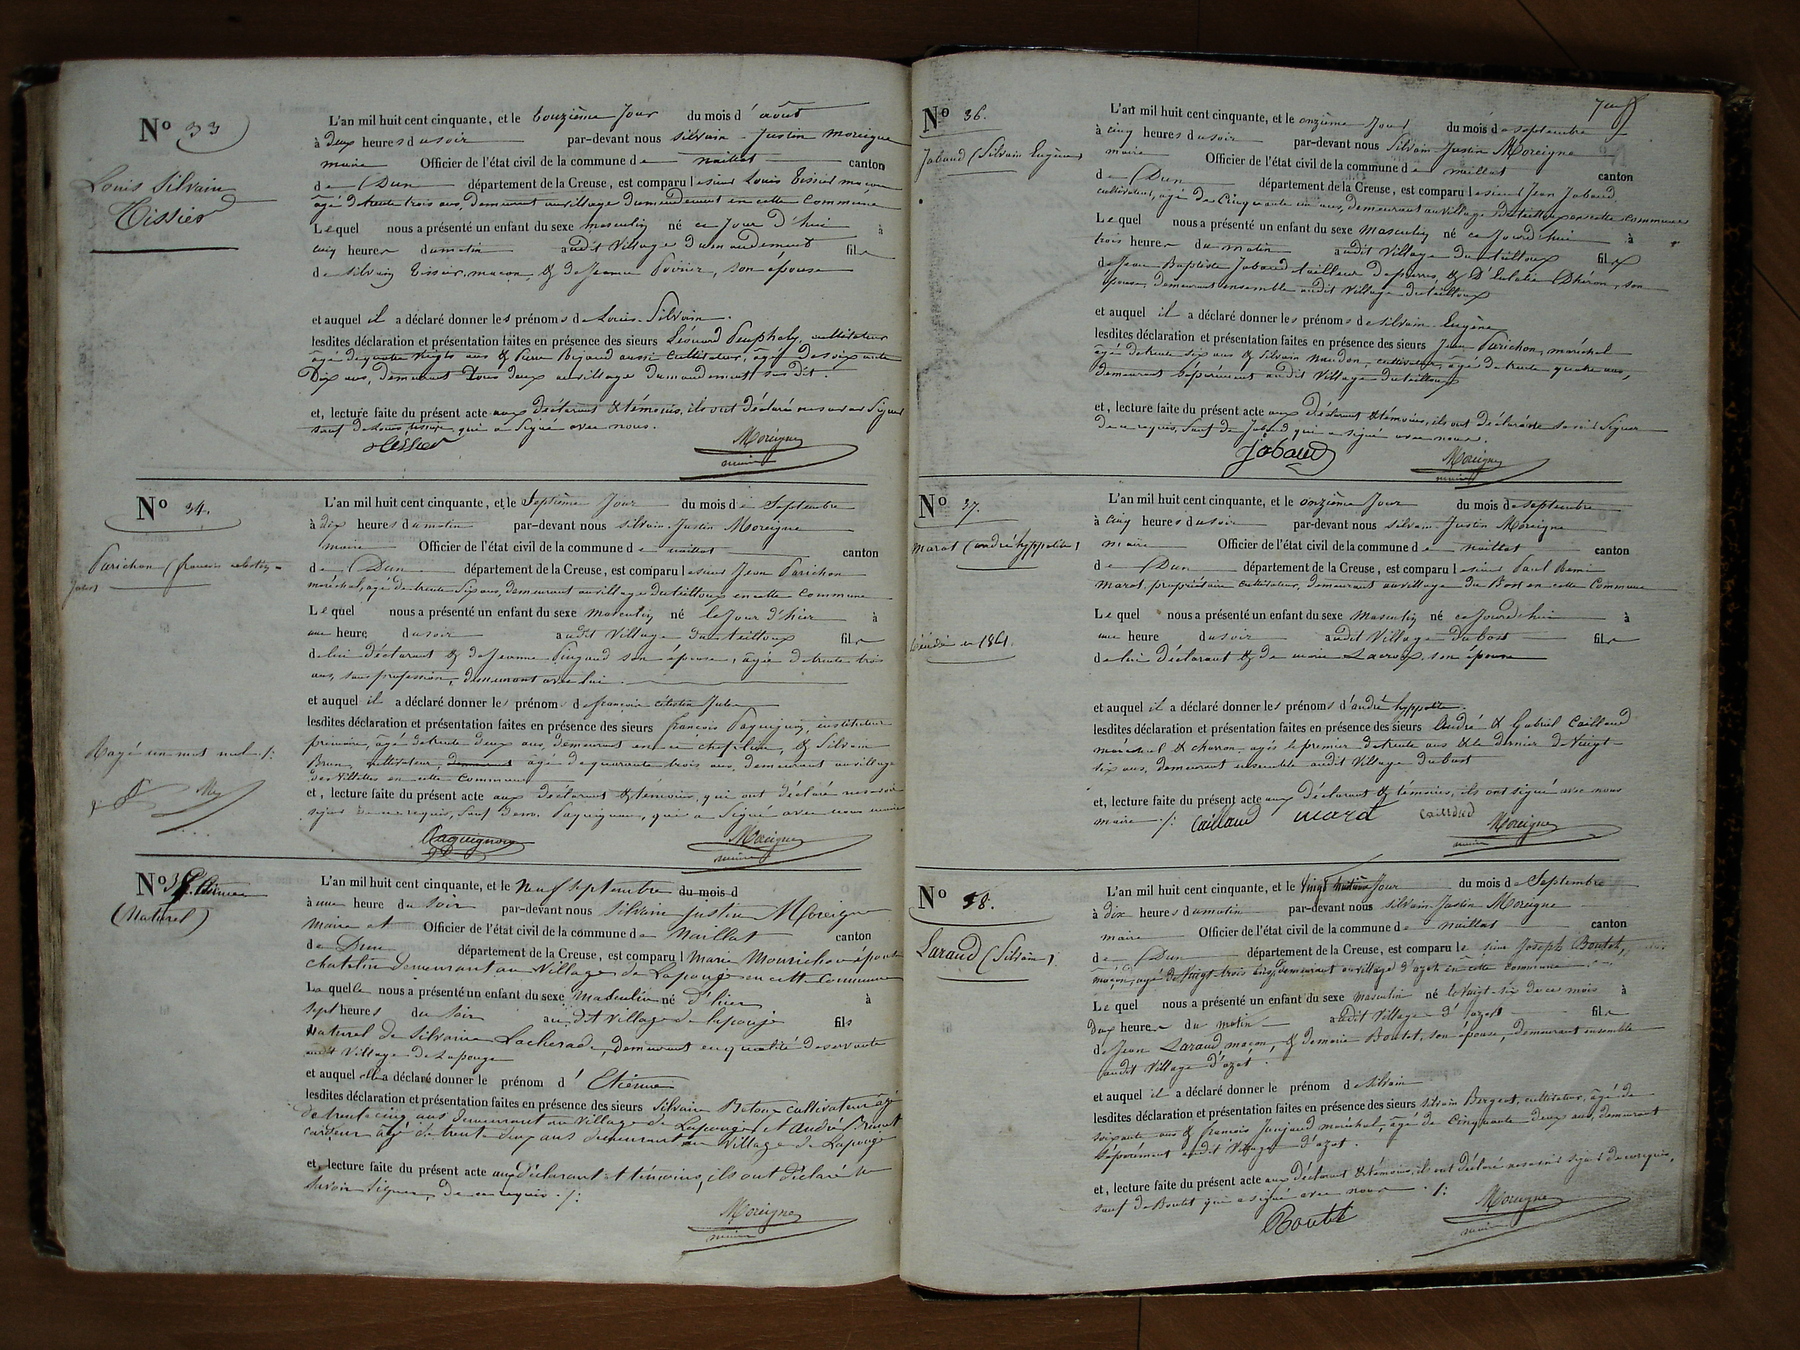 No 33
Louis Silvain
Tissier
L'an mil huit cent cinquante, et le jour du mois d'août
à deux heures du soir par-devant nous silvain Justin Moreigne
maire Officier de l'état civil de la commune de naillat canton
de Dun département de la Creuse, est comparu le sieur Louis Tissier maçon
âgé de trente trois ans, demeurant au village en cette commune
Lequel nous a présenté un enfant du sexe masculin né ce jour d'hui à
cinq heures du matin audit Village fils
de silvain Tissier, maçon, & de Jeanne Poirier, son épouse
et auquel il a déclaré donner les prénoms de Louis-Silvain.
lesdites déclaration et présentation faites en présence des sieurs Léonard cultivateur
âgé de quatre vingts ans & Pierre aussi cultivateur, âgé de soixante
Dix ans, demeurant Tous deux au village susdit.
et, lecture faite du présent acte aux déclarant & témoins, ils ont déclaré ne savoir Signer
sauf qui a signé avec nous.
Tissier
Moreigne
maire
No 34.
Parichon (françois célestin
Jules)
L'an mil huit cent cinquante, et le Septième Jour du mois de Septembre
à dix heures du matin par-devant nous silvain Justin Moreigne
maire Officier de l'état civil de la commune de naillat canton
de Dun département de la Creuse, est comparu le sieur Jean Parichon
maréchal, âgé de trente six ans, demeurant au village du teilloux en cette commune
Lequel nous a présenté un enfant du sexe masculin né le jour d'hier à
une heure du soir audit Village du teilloux fils
de lui déclarant & de Jeanne Pingaud son épouse, âgée de trente trois
ans, sans profession, demeurant avec lui
et auquel il a déclaré donner les prénoms de françois célestin Jules
lesdites déclaration et présentation faites en présence des sieurs françois Paquignon, instituteur
primaire, âgé de trente deux ans, demeurant en ce chef-lieu, & Silvain
Brun, cultivateur, âgé de quarante trois ans, demeurant au village
des Villettes en cette commune
Rayé un mot nul ./:
et, lecture faite du présent acte aux déclarant & témoins, qui ont déclaré ne savoir
signer de ce requis, Sauf Paquignon, qui a Signé avec nous maire
Paquignon
Moreigne
maire
No 35 Etienne
(Naturel)
L'an mil huit cent cinquante, et le Neuf Septembre du mois d
à une heure du Soir par-devant nous Silvain Justin Moreigne
Maire et Officier de l'état civil de la commune de Naillat canton
de Dun département de la Creuse, est comparu Marie Mourichon épouse
Chatelin demeurant au Village de Lapouge en cette Commune
Laquelle nous a présenté un enfant du sexe masculin né d'hier à
Sept heures du Soir audit village de lapouge fils
Naturel de Silvaine Lacherade, demeurant en qualité de servante
audit Village de Lapouge
et auquel elle a déclaré donner le prénom d'Etienne
lesdites déclaration et présentation faites en présence des sieurs Silvain Betoux cultivateur âgé
de trente cinq ans demeurant au Village de Lapouge et André
cardeur âgé de trente deux ans demeurant au Village de Lapouge
et, lecture faite du présent acte aux déclarant et témoins, ils ont déclaré ne
Savoir signer, de ce requis ./:
Moreigne
maire
No 36.
Jabaud (Silvain Eugène)
L'an mil huit cent cinquante, et le onzième Jour du mois de septembre
à cinq heures du soir par-devant nous Silvain Justin Moreigne
maire Officier de l'état civil de la commune de naillat canton
de Dun département de la Creuse, est comparu le sieur Jean Jabaud
cultivateur, âgé de cinquante un ans, demeurant au village du teilloux en cette commune
Lequel nous a présenté un enfant du sexe masculin né ce Jourd'hui à
trois heures du matin audit Village du teilloux fils
de Jean Baptiste Jabaud tailleur de pierres, & D'Eulalie Dhéron, son
épouse, demeurant ensemble audit Village du teilloux
et auquel il a déclaré donner les prénoms de silvain-Eugène
lesdites déclaration et présentation faites en présence des sieurs Jean Parichon, maréchal
âgé de trente six ans & silvain naudon, cultivateur, âgé de trente quatre ans,
demeurant séparément audit Village du teilloux
et, lecture faite du présent acte aux Déclarant & témoins, ils ont déclaré ne savoir Signer
de ce requis, Sauf de Jabaud qui a signé avec nous.
Jabaud
Moreigne
maire
No 37.
marot (andré hyppolite)
décédé en 1861.
L'an mil huit cent cinquante, et le onzième Jour du mois de septembre
à cinq heures du soir par-devant nous silvain Justin Moreigne
maire Officier de l'état civil de la commune de naillat canton
de Dun département de la Creuse, est comparu le sieur Paul Remi
marot, propriétaire cultivateur, demeurant au village du Bost en cette Commune
Lequel nous a présenté un enfant du sexe Masculin né ce Jourd'hui à
une heure du soir audit Village du bost fils
de lui déclarant & de marie Lacroix, son épouse
et auquel il a déclaré donner les prénoms d'andré hyppolite.
lesdites déclaration et présentation faites en présence des sieurs André & Gabriel Caillaud
maréchal & charron, âgés le premier de trente ans & le dernier de Vingt-
six ans, demeurant ensemble audit Village du bost
et, lecture faite du présent acte aux Déclarant & témoins, ils ont signé avec nous
maire ./: Caillaud marot Caillaud
Moreigne
maire
No 38.
Laraud (Silvain).
L'an mil huit cent cinquante, et le Vingt huitième Jour du mois de Septembre
à dix heures du matin par-devant nous silvain Justin Moreigne
maire Officier de l'état civil de la commune de naillat canton
de Dun département de la Creuse, est comparu le sieur Joseph Boutet,
maçon, âgé de Vingt-trois ans, demeurant au village d'azat en cette commune
Lequel nous a présenté un enfant du sexe masculin né le vingt-six de ce mois à
deux heures du matin audit Village d'azat fils
de Jean Laraud, maçon, & de marie Boutet, son épouse, demeurant ensemble
audit Village d'azat
et auquel il a déclaré donner le prénom de silvain
lesdites déclaration et présentation faites en présence des sieurs silvain cultivateur, âgé de
soixante ans & françois maréchal, âgé de cinquante deux ans, demeurant
séparément audit Village d'azat.
et, lecture faite du présent acte aux déclarant & témoins, ils ont déclaré ne savoir signer de ce requis,
sauf de Boutet qui a signé avec nous ./:
Boutet
Moreigne
maire